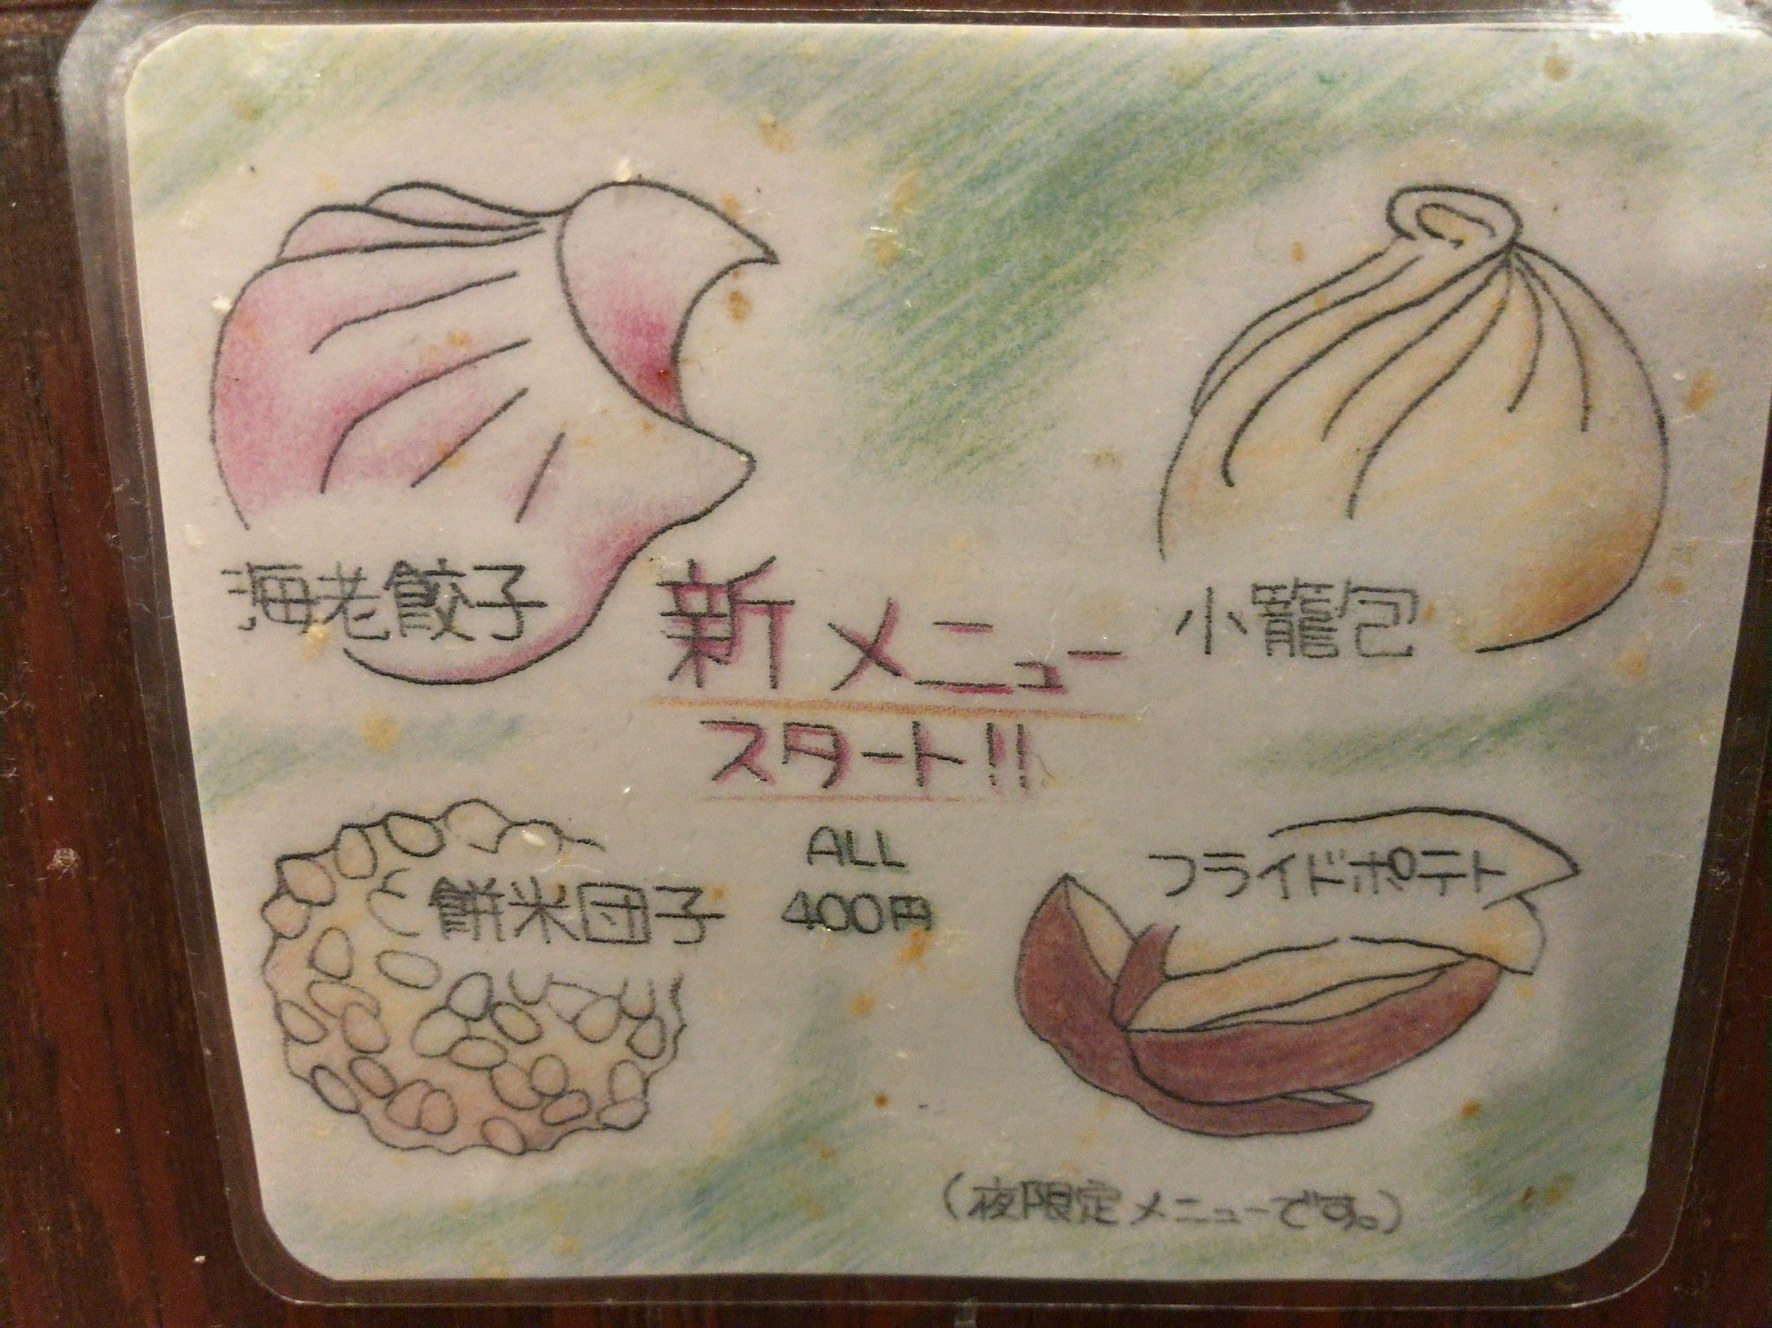 海老餃子
小籠包
新メニュー
スタート!!
ALL
400円
餅米団子
フライドポテト
(夜限定メニューです。)